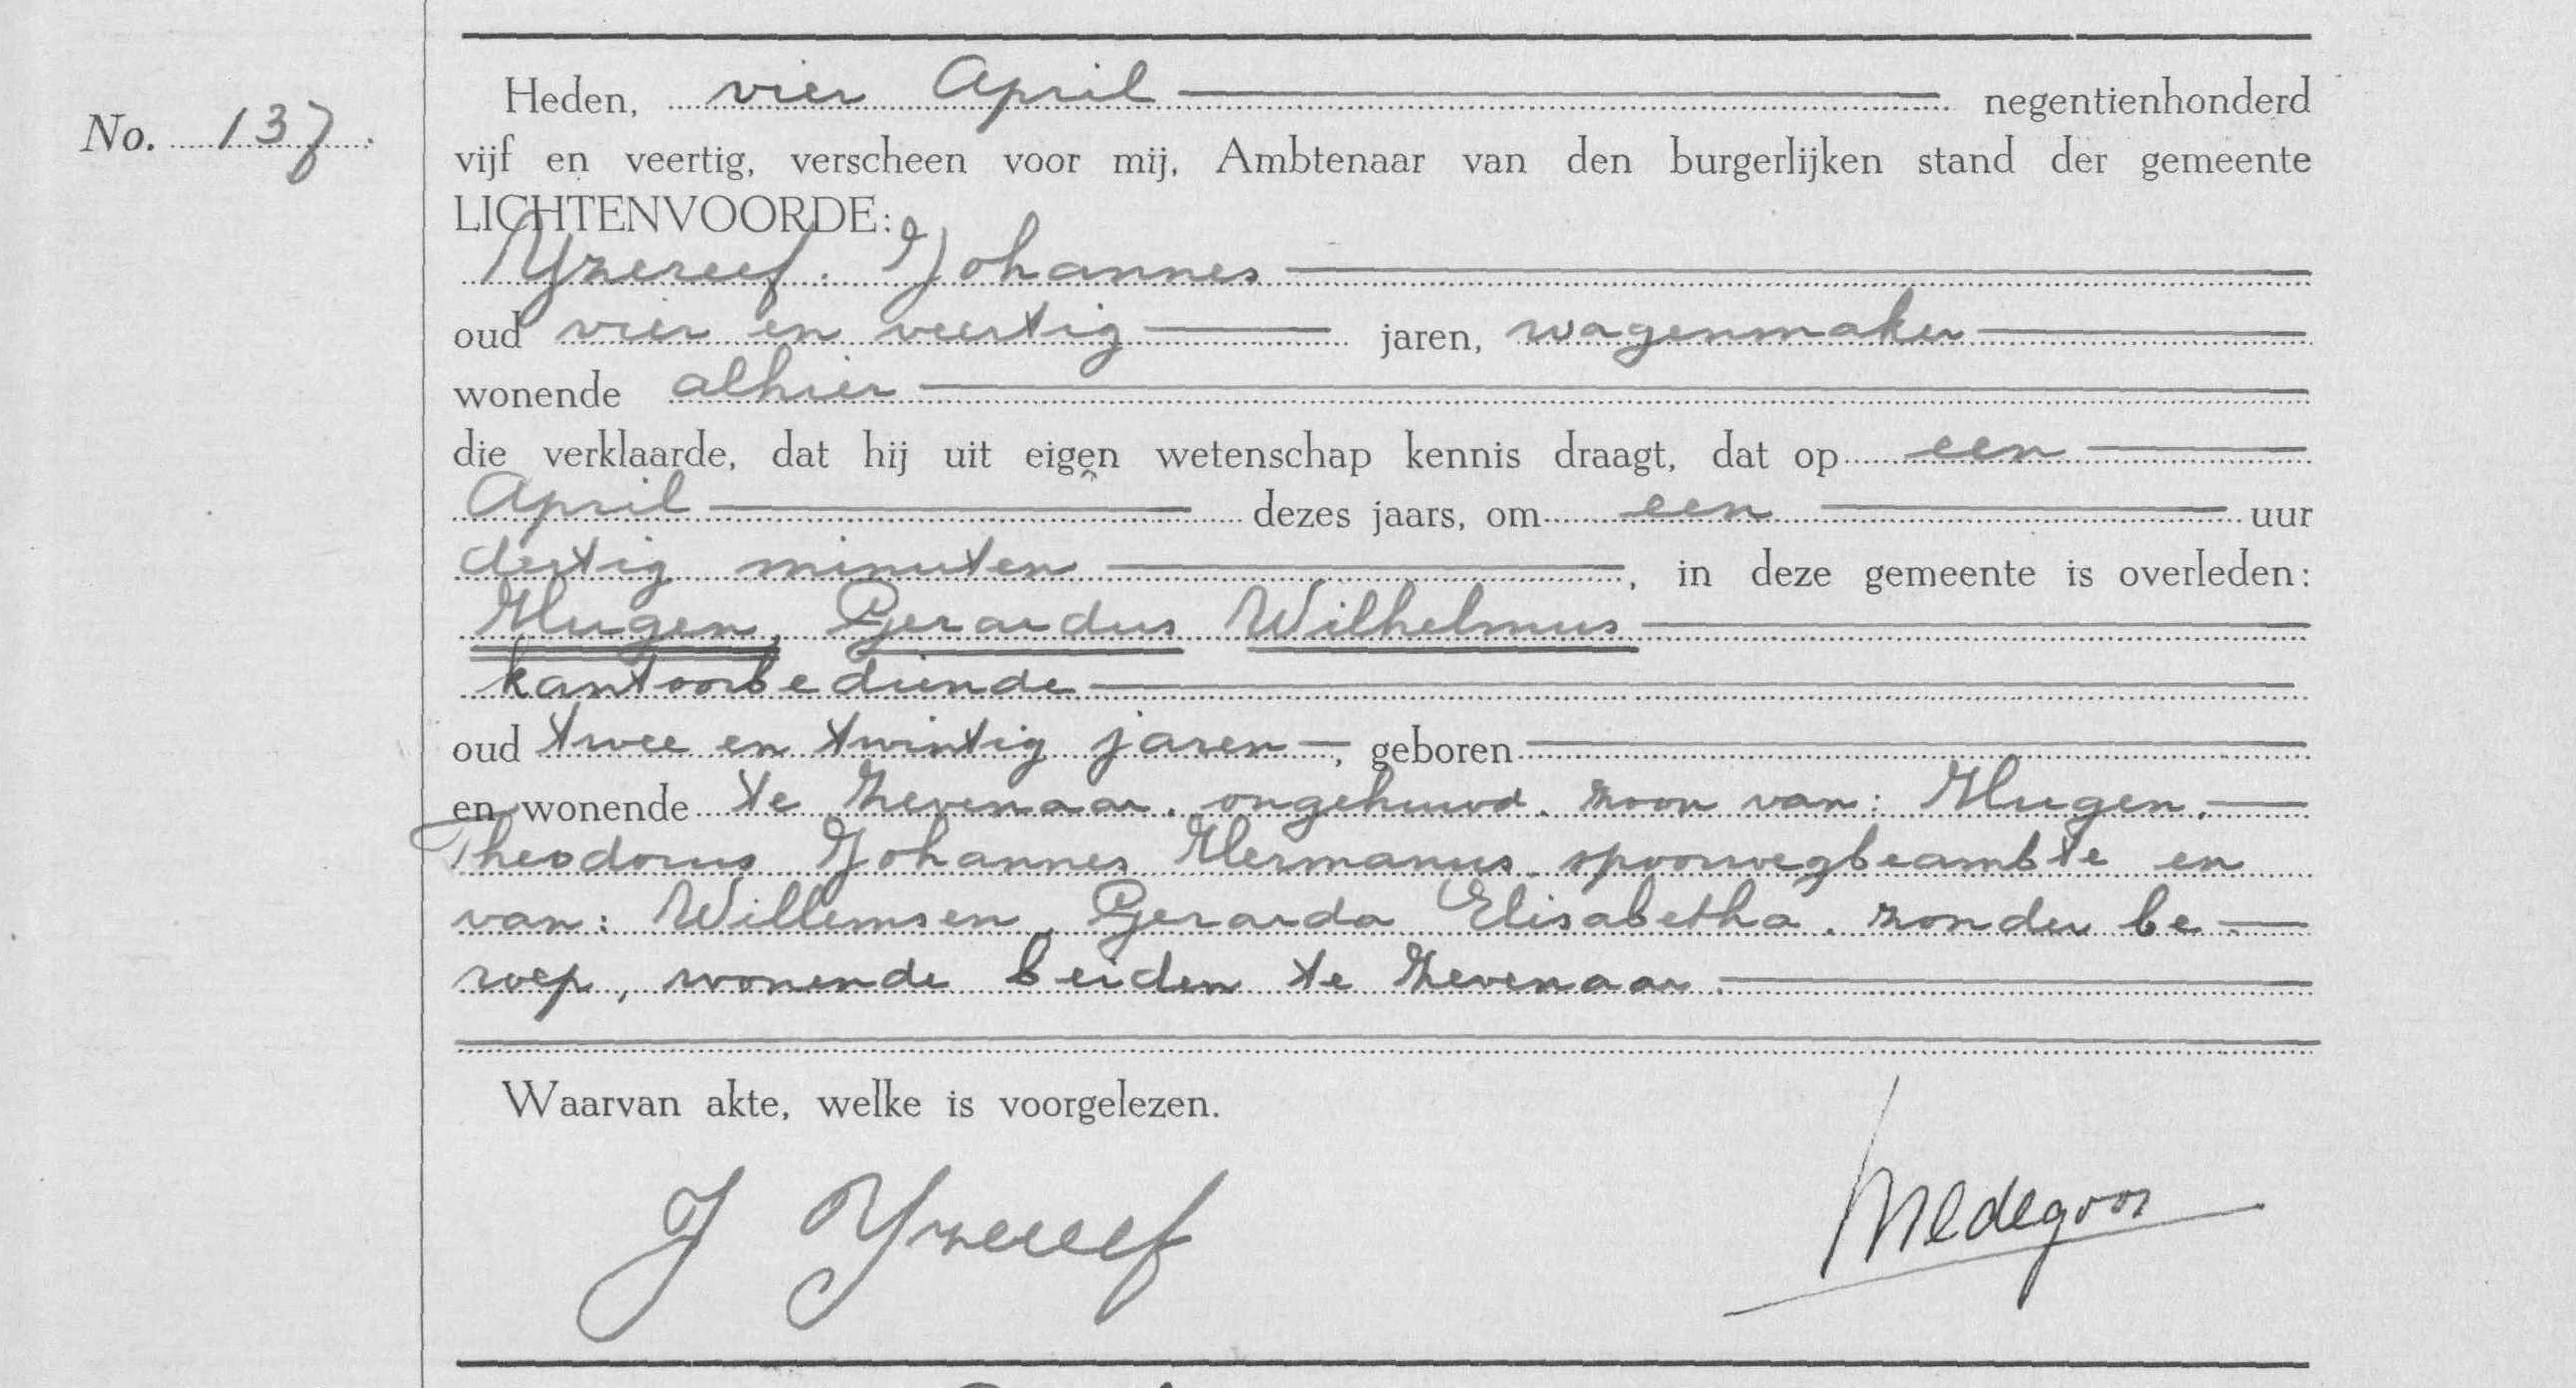 Heden, vier April negentienhonderd
No. 137.
vijf en veertig, verscheen voor mij, Ambtenaar van den burgerlijken stand der gemeente
LICHTENVOORDE:
Yzereef. Johannes
oud vier en veertig jaren, wagenmaker
wonende alhier
die verklaarde, dat hij uit eigen wetenschap kennis draagt, dat op een
April dezes jaars, om een uur
dertig minuten, in deze gemeente is overleden:
Hugen, Gerardus Wilhelmus
kantoorbediende
oud twee en twintig jaren, geboren
en wonende te Zevenaar. ongehuwd. zoon van: Hugen.
Theodorus Johannes Hermanus. spoorwegbeambte en
van: Willemsen, Gerarda Elisabetha. zonder be-
roep, wonende beiden te Zevenaar.
Waarvan akte, welke is voorgelezen.
J Yzereef